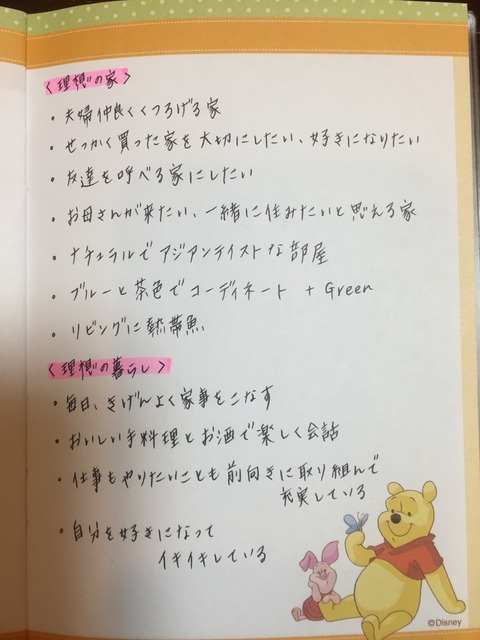 〈理想の家〉
・夫婦仲良くくつろげる家
・せっかく買った家を大切にしたい、好きになりたい
・友達を呼べる家にしたい
・お母さんが来たい、一緒に住みたいと思える家
・ナチュラルでアジアンテイストな部屋
・ブルーと茶色でコーディネート + Green
・リビングに熱帯魚
〈理想の暮らし〉
・毎日、きげんよく家事をこなす
・おいしい手料理とお酒で楽しく会話
・仕事もやりたいことも前向きに取り組んで
充実している
・自分を好きになって
イキイキしている
©Disney